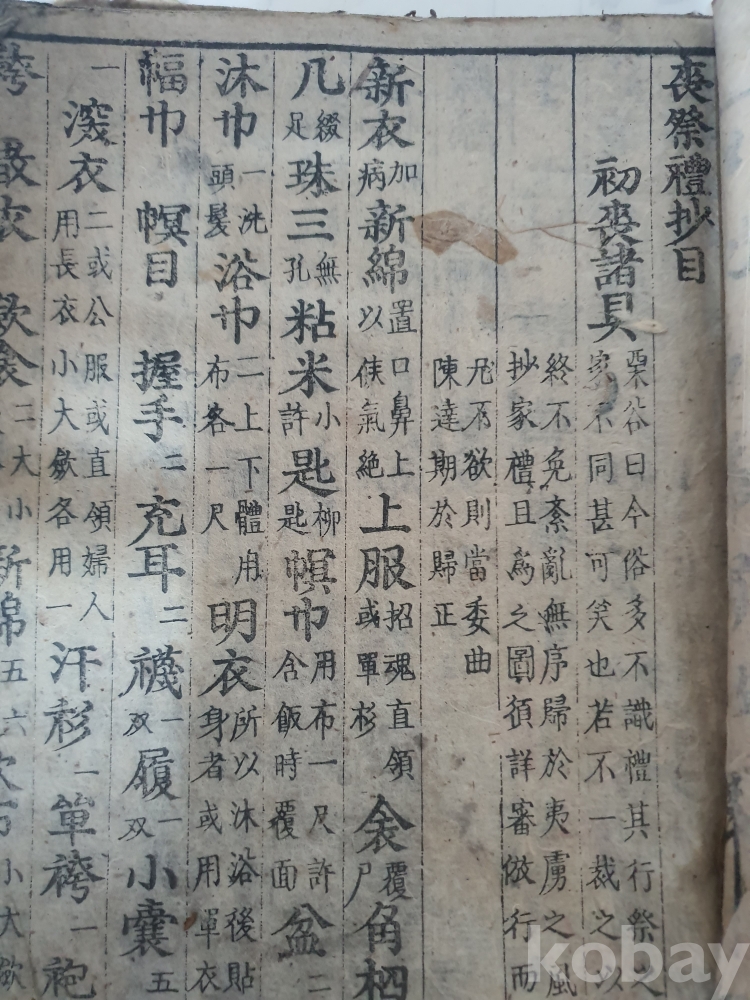 喪祭禮抄目
初喪諸具
栗谷曰今俗多不識禮其行祭之
家家不同甚可笑也若不一裁之以
終不免紊亂無序歸於夷虜之風
抄家禮且爲之圖須詳審倣行而
不欲則當委曲
陳達期於歸正
新衣加病新綿置口鼻上以俟氣絶上服招魂直領或單衫衾覆尸角柶
几綴足珠三無孔粘米小許匙柳匙幎巾用布一尺許含飯時覆面盆二
沐巾一洗頭髮浴巾二上下體用布各一尺明衣所以沐浴後貼身者或用單衣
幅巾幎目握手二充耳二襪一双履一双小囊五
一深衣二或公服或直領婦人用長衣小大斂各用一汗衫一單袴一袍
袴散衣斂衾二大小新綿五六小大斂
kobay